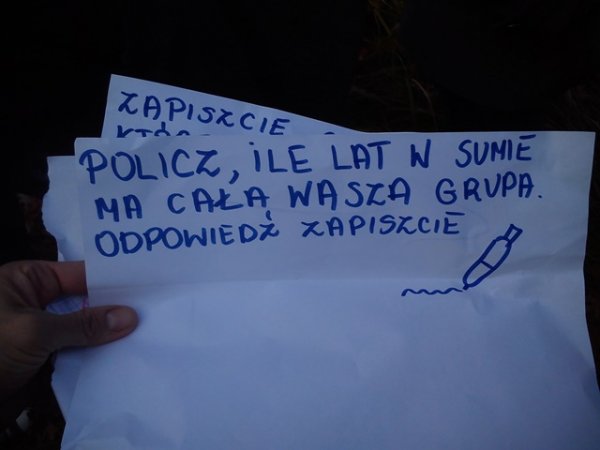 ZAPISZCIE
POLICZ, ILE LAT W SUMIE
MA CAŁA WASZA GRUPA.
ODPOWIEDŹ ZAPISZCIE